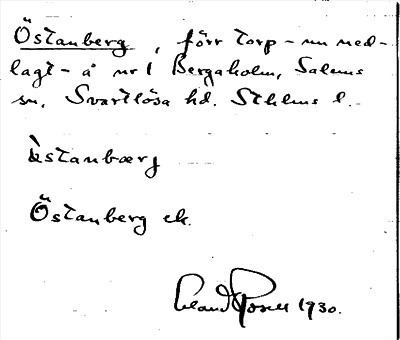 Östanberg, förr torp – nu ned-
lagt – å nr 1 Bergaholm, Salems
sn, Svartlösa hd. Sthlms l.
östanbærj
Östanberg ek.
1930.